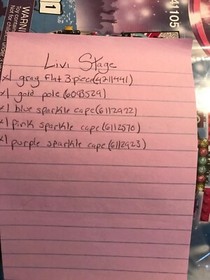 WARNIN
41105
Livi Stage
x1 gray flat 3 piece(4211441)
x1 gold pole (6093529)
x1 blue sparkle cape(6112922)
x1 pink sparkle cape(6112570)
x1 purple sparkle cape(6112923)